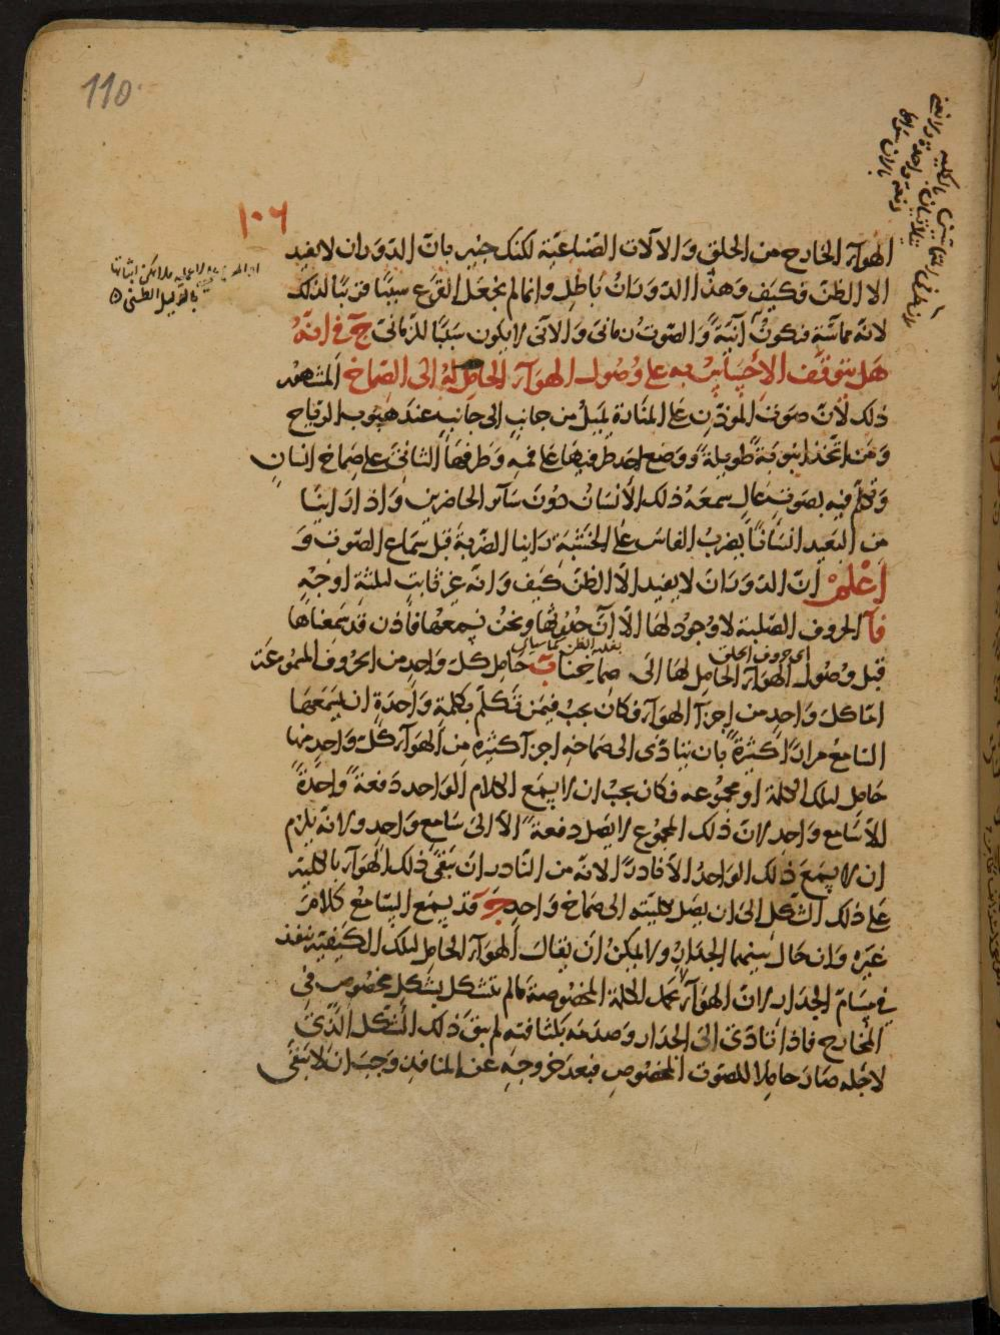 110
١٠٦
الهوآء الخارج من الحلق والالات الصناعية لكنك خبير بان الدوران لا يفيد
الا الظن فكيف وهذا الدوران باطل وانما لم نجعل القرع سببًا قريبًا لذلك
لانه مماسّة فكون آنيّة والصوت زمانى والآنى لا يكون سببًا للزمانى ج فى انه
هل يتوقف الاحساس به على وصول الهوآء الحامل له الى الصماخ المشهور
ذلك لان صوت الموذن على المنارة يميل من جانب الى جانب عند هبوب الرياح
ومن اتخذ انبوبة طويلة ووضع احد طرفيها على فمه وطرفها الثانى على صماخ انسان
وتكلم فيه بصوت عال سمعه ذلك الانسان دون سائر الحاضرين واذا راينا
من البعيد انسانًا يضرب الفاس على الخشبة راينا الضربة قبل سماع الصوت و
اعلم ان الدوران لا يفيد الا الظن كيف وانه غير ثابت لثلثة اوجه
آ الحروف الصلبة لا وجود لها الا آن حدوثها ونحن نسمعها فاذن قد سمعناها
اى حروف الحلق
قبل وصول الهوآء الحامل لها الى صماخنا ب حامل كل واحد من الحروف المسموعة
اما كل واحد من اجزآء الهوآء فكان يجب فيمن تكلم بكلمة واحدة ان يسمعها
السامع مرارًا كثيرة بان يتادى الى صماخه اجزآء كثيرة من الهوآء كل واحد منها
حامل لتلك الكلمة او مجموعه فكان يجب ان لا يسمع الكلام الواحد دفعة واحدة
الا سامع واحد لان ذلك المجموع لا يصل دفعة الا الى سامع واحد ولانه يلزم
ان لا يسمع ذلك الواحد الا نادرًا لانه من النادر ان يبقى ذلك الهوآء بالكلية
على ذلك الشكل الى ان يصل بكليته الى صماخ واحد ج قد يسمع السامع كلام
غيره وان حال بينهما الجدار ولا يمكن ان يقال الهوآء الحامل لتلك الكيفية ينفذ
فى مسام الجدار لان الهوآء لا يحمل الكلمة المخصوصة ما لم يتشكل بشكل مخصوص فى
المخارج فاذا تادى الى الجدار وصدمه بكثافته لم يبق ذلك الشكل الذى
لاجله صار حاملا للصوت المخصوص فبعد خروجه عن المنافذ وجب ان لا يبقى
بالدليل الظنى